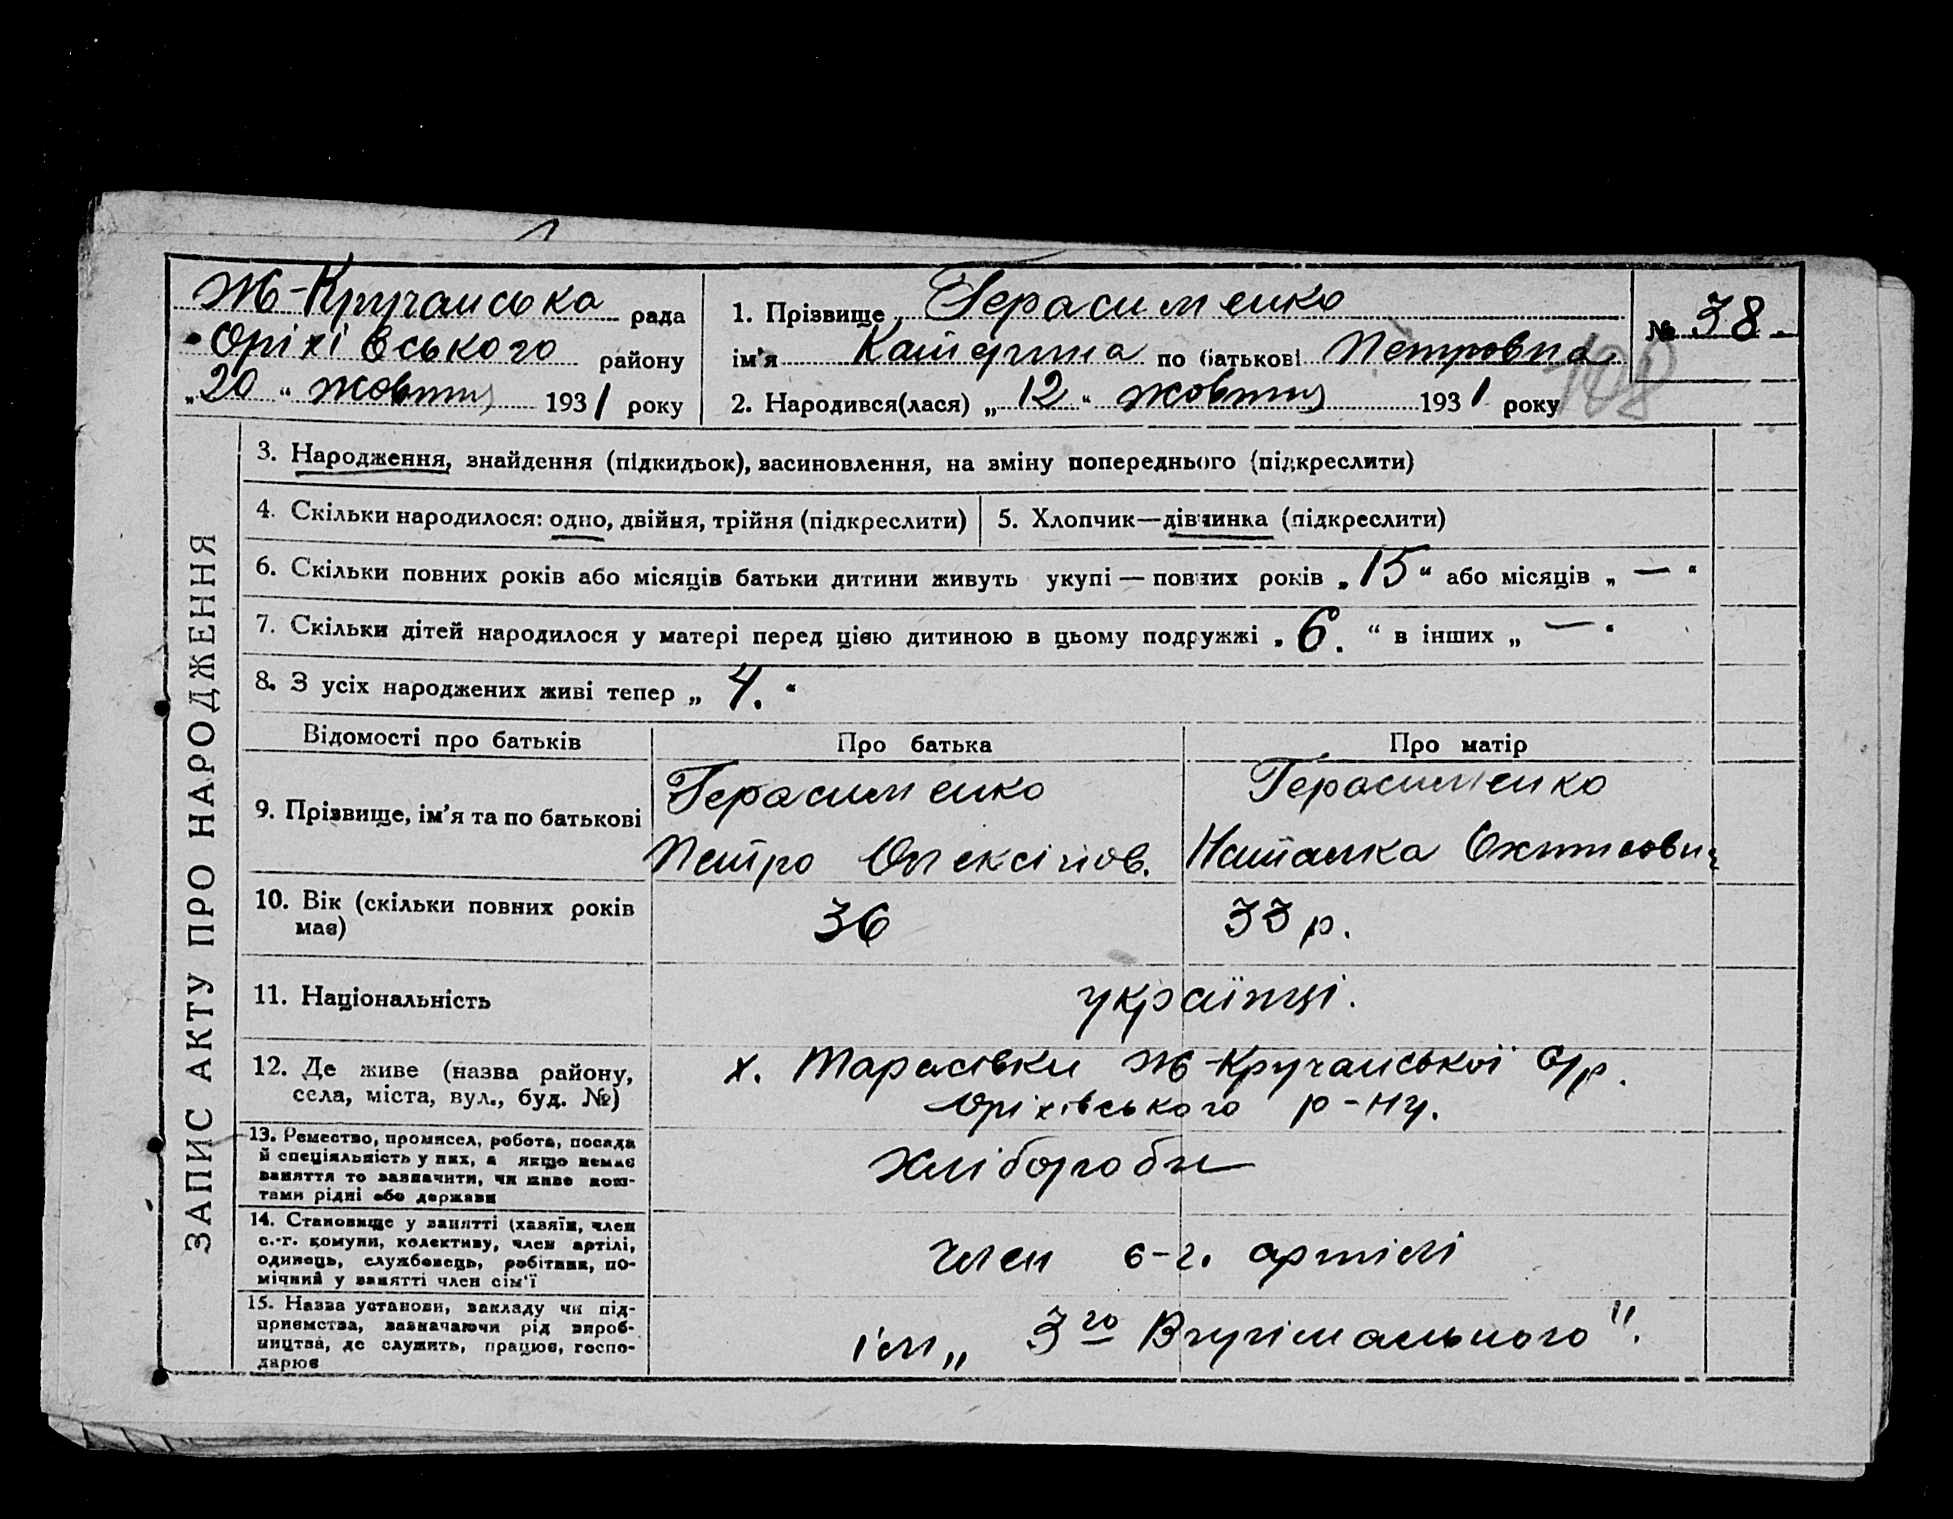 Ж-Кручанська рада
Оріхівського району
„20“ жовтня 1931 року
1. Прізвище Герасименко
ім'я Катерина по батькові Петровна
2. Народився(лася) „12“ жовтня 1931 року
№ 38.
108
ЗАПИС АКТУ ПРО НАРОДЖЕННЯ
3. Народження, знайдення (підкидьок), засиновлення, на зміну попереднього (підкреслити)
4. Скільки народилося: одно, двійня, трійня (підкреслити)
5. Хлопчик—дівчинка (підкреслити)
6. Скільки повних років або місяців батьки дитини живуть укупі — повних років „15“ або місяців „—“
7. Скільки дітей народилося у матері перед цією дитиною в цьому подружжі „6.“ в інших „—“
8. З усіх народжених живі тепер „4.“
Відомості про батьків
Про батька
Про матір
9. Прізвище, ім'я та по батькові
Герасименко
Петро Олексійов.
Герасименко
Наталка
10. Вік (скільки повних років
має)
36
33 р.
11. Національність
українці.
12. Де живе (назва району,
села, міста, вул., буд. №)
х. Тарасівки Ж-Кручанської С/р.
Оріхівського р-ну.
13. Ремество, промисел, робота, посада
й спеціяльність у них, а якщо немає
заняття то зазначити, чи живе кош-
тами рідні або держави
хлібороби
14. Становище у занятті (хазяїн, член
с.-г. комуни, колективу, член артілі,
одинець, службовець, робітник, по-
мічний у занятті член сім'ї
член с-г. артілі
15. Назва установи, закладу чи під-
приємства, зазначаючи рід вироб-
ництва, де служить, працює, госпо-
дарює
ім „ 3го